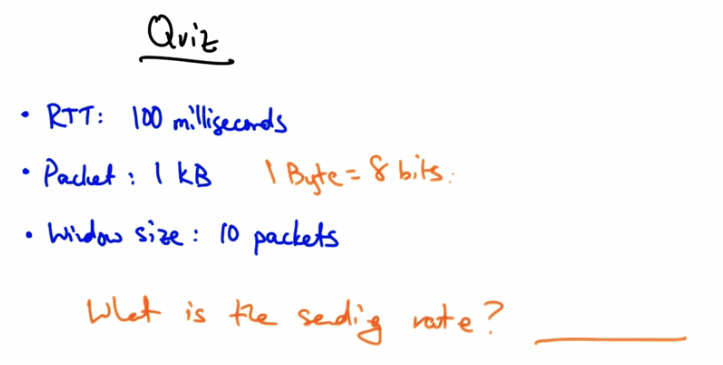 Quiz
• RTT: 100 milliseconds
• Packet: 1 kB 1 Byte = 8 bits.
• Window size: 10 packets
What is the sending rate?